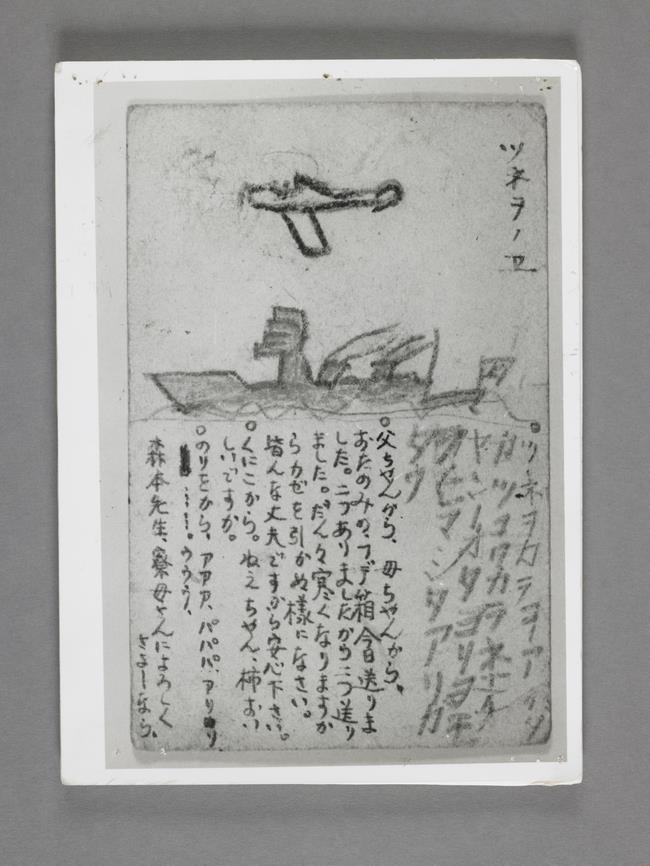 ツネヲノヱ
○ツネヲカラ
ガツコウカラネエチ
ヤンーオタヨリヲモ
ラヒマシタアリガ
タウ
○父ちゃんから、母ちゃんから、
おたのみの、フデ箱今日送りま
した。二つありましたから二つ送り
ました。だん々寒くなりますか
らカゼを引かぬ様になさい。
皆んな丈夫ですから安心下さい。
○くにこから。ねえちゃん、柿おい
しいですか。
○のりをから、アアア、パパパ、
……。ウウウ、
森本先生、寮母さんによろしく
さよーなら、